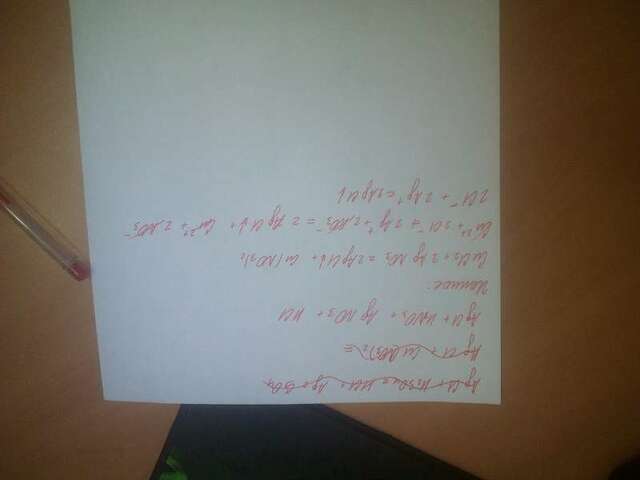 AgCl + H2SO4 = HCl + Ag2SO4
AgCl + Cu(NO3)2 =
AgCl + HNO3 = AgNO3 + HCl
Ионное:
CuCl2 + 2AgNO3 = 2AgCl↓ + Cu(NO3)2
Cu²⁺ + 2Cl⁻ + 2Ag⁺ + 2NO3⁻ = 2AgCl↓ + Cu²⁺ + 2NO3⁻
2Cl⁻ + 2Ag⁺ = 2AgCl↓